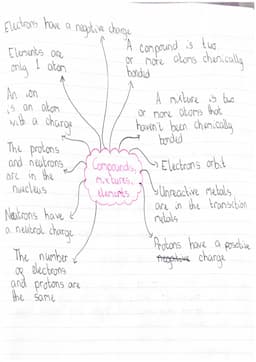 Electrons have a negative charge
Elements are
only 1 atom
An ion
is an atom
with a charge
The protons
and neutrons
are in the
nucleus
Neutrons have
a neutral charge
The number
of electrons
and protons are
the same
Compounds,
mixtures,
elements
A compound is two
or more atoms chemically
bonded
A mixture is two
or more atoms that
haven't been chemically
bonded
Electrons orbit
Unreactive metals
are in the transition
metals
Protons have a positive
negative charge